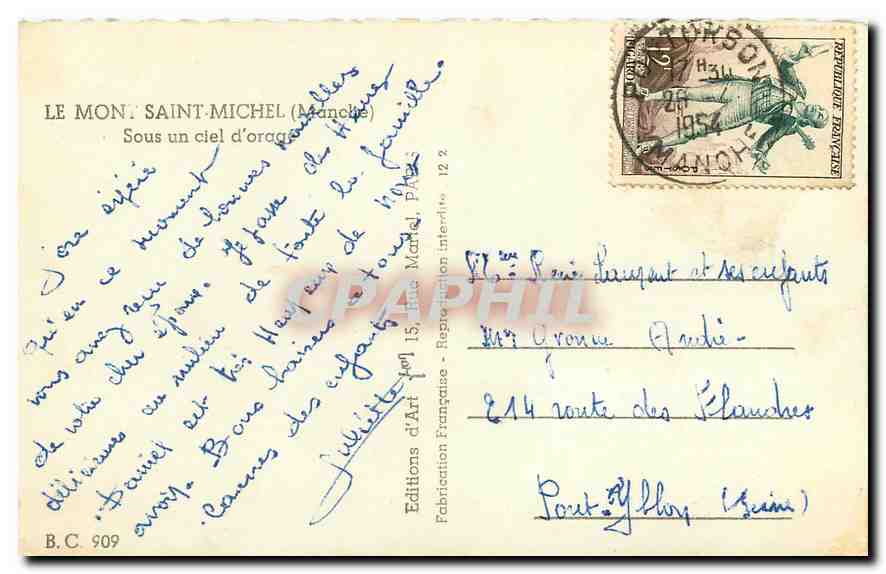 LE MONT SAINT-MICHEL (Manche)
Sous un ciel d'orage
J'ose espérer
qu'en ce moment
vous avez reçu de bonnes nouvelles
de votre cher époux. Je passe des heures
délicieuses au milieu de toute la famille.
Daniel est très heureux de nous
avoir. Bons baisers à tous.
Caresses des enfants
Juliette
B. C. 909
Editions d'Art 15, Rue Martel, PARIS
Fabrication Française - Reproduction interdite 12 2
CPAPHIL
RÉPUBLIQUE FRANÇAISE
12F
FIGARO
POSTES
PONTORSON
17H-34
28
1954
MANCHE
Mme René Laurent et ses enfants
Mr Yvonne André
214 route des Flandres
Pont-Yblon (Seine)